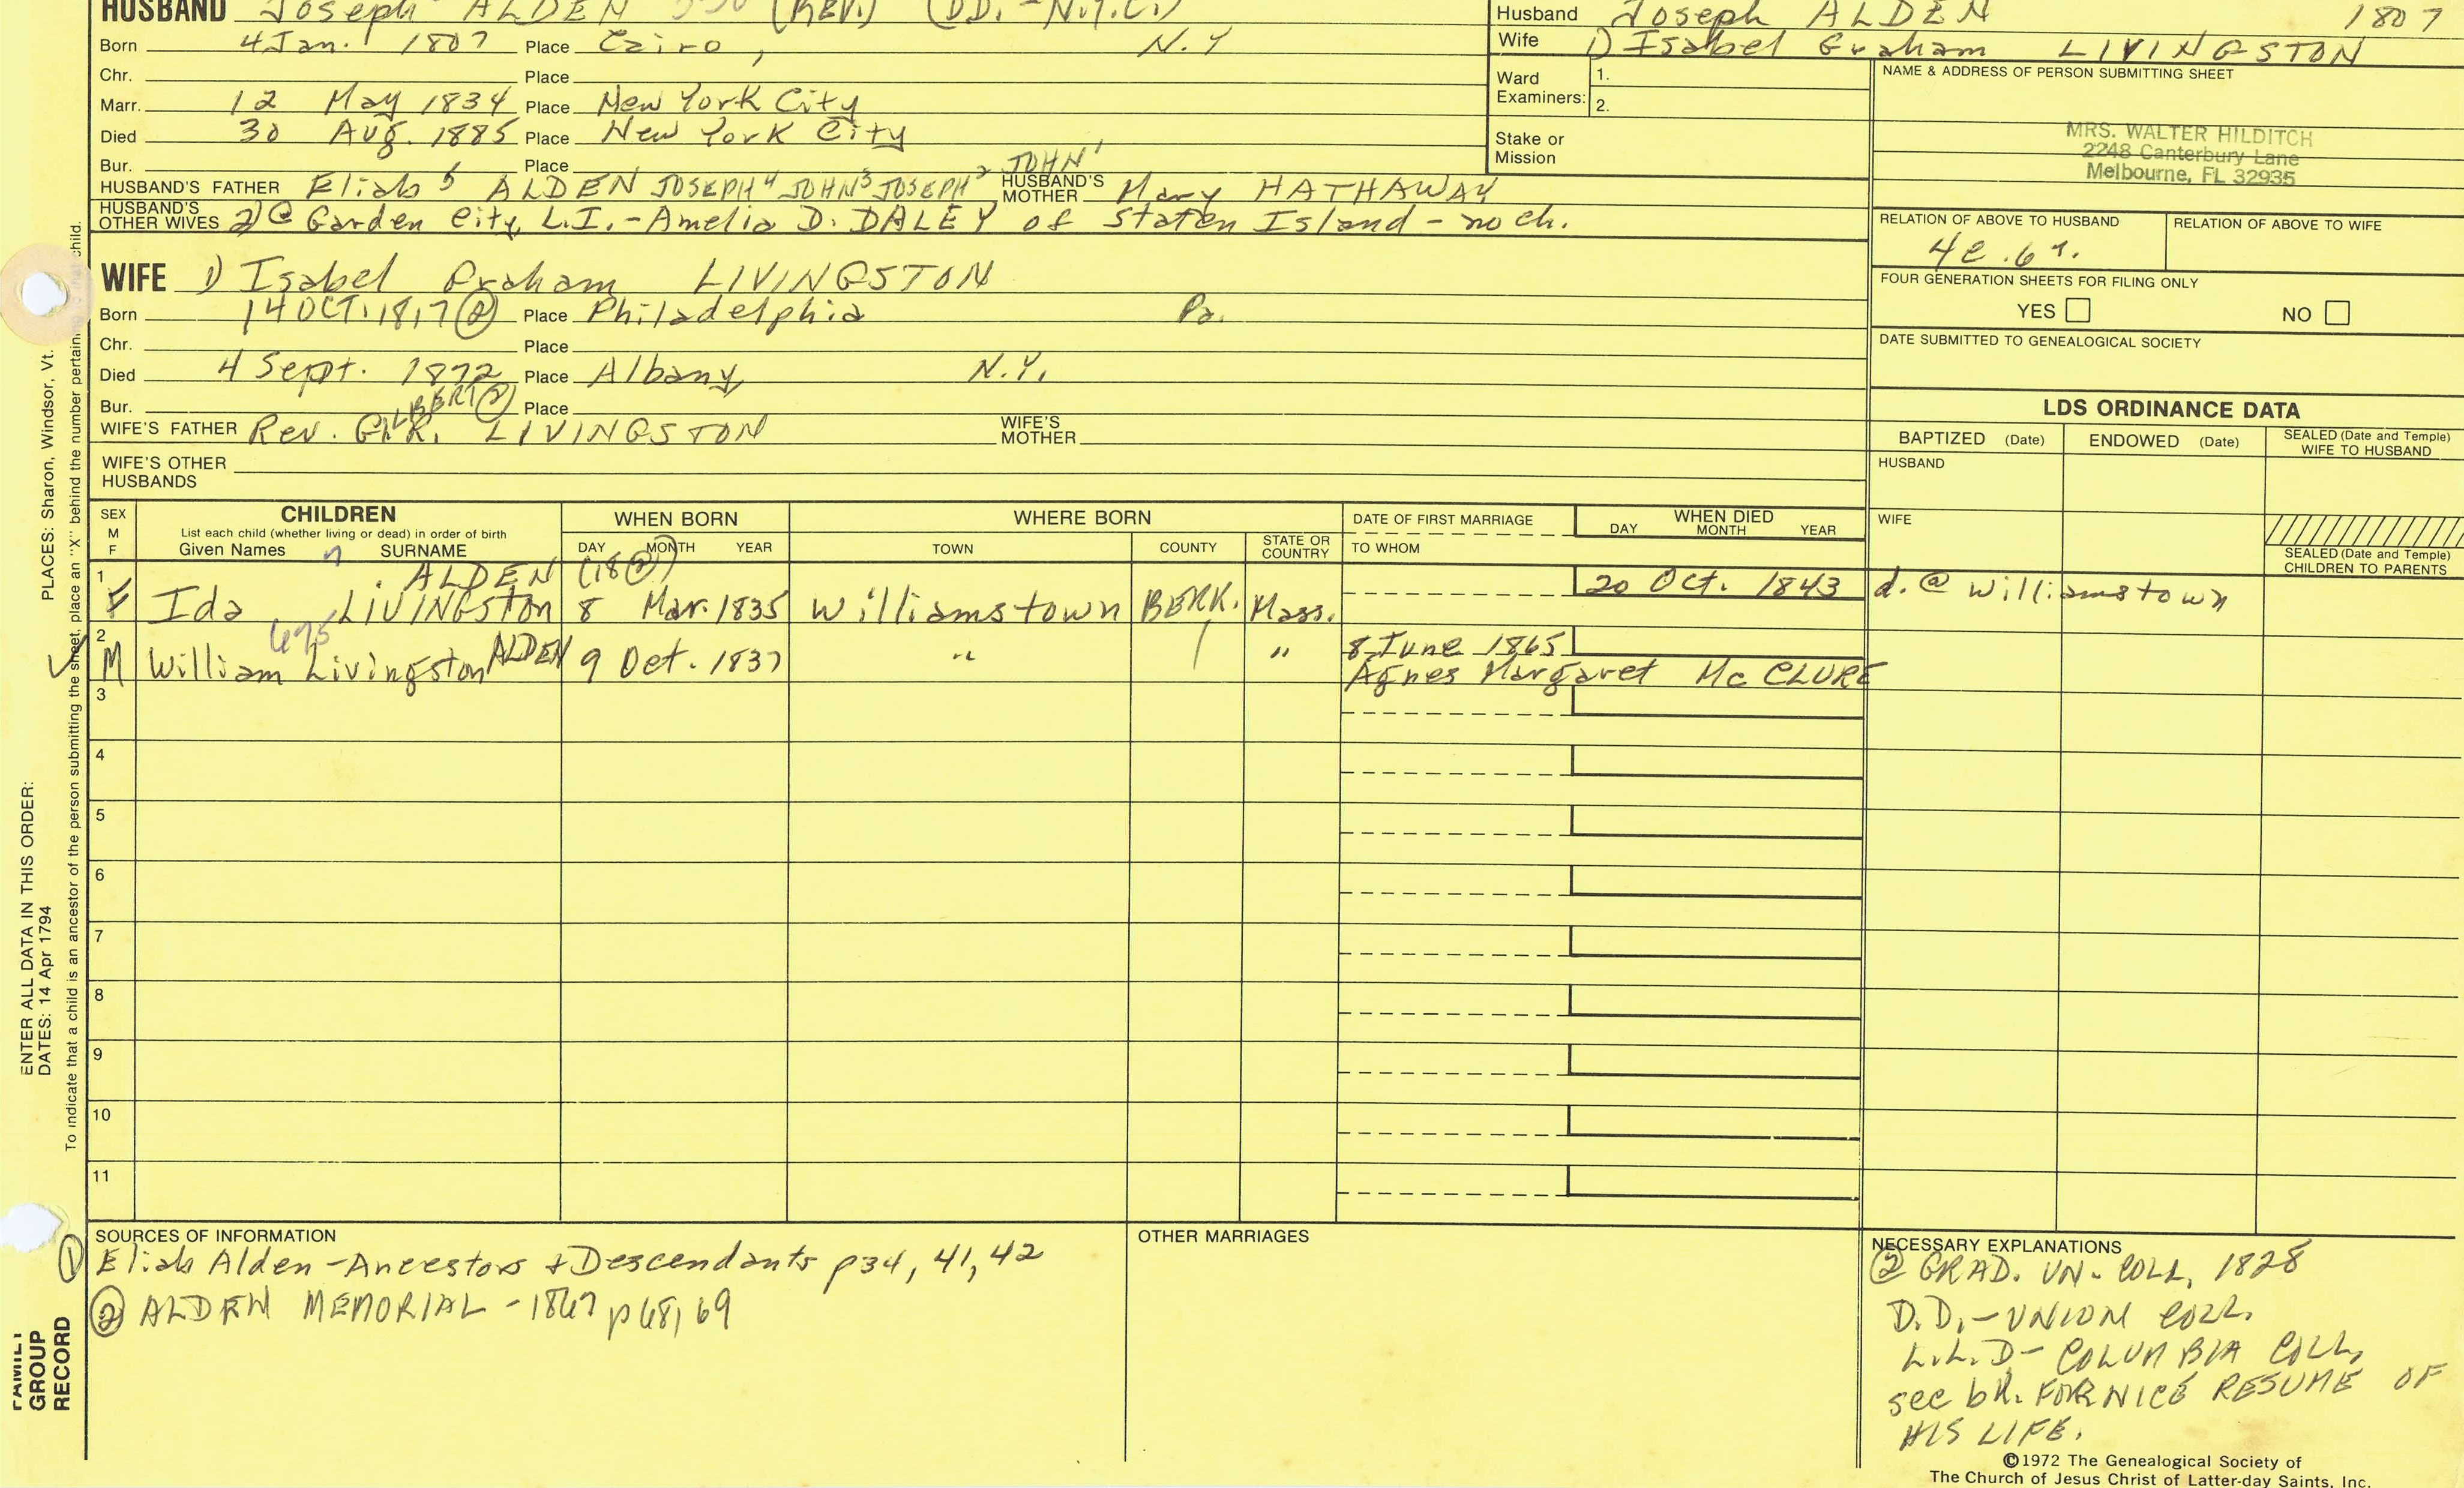 HUSBAND Joseph ALDEN 330 (REV.) (D.D. - N.Y.C.)
Born 4 Jan. 1807 Place Cairo, N.Y
Chr. Place
Marr. 12 May 1834 Place New York City
Died 30 Aug. 1885 Place New York City
Bur. Place
HUSBAND'S FATHER Eliab 5 ALDEN JOSEPH 4 JOHN 3 JOSEPH 2 JOHN 1 HUSBAND'S MOTHER Mary HATHAWAY
HUSBAND'S OTHER WIVES 2) @ Garden City, L.I. - Amelia D. DALEY of Staten Island - no ch.
WIFE 1) Isabel Graham LIVINGSTON
Born 14 OCT. 1817 (2) Place Philadelphia Pa.
Chr. Place
Died 4 Sept. 1872 Place Albany, N.Y.
Bur. Place
WIFE'S FATHER Rev. GILBERT (2) R. LIVINGSTON WIFE'S MOTHER
WIFE'S OTHER HUSBANDS
Husband Joseph ALDEN 1807
Wife 1) Isabel Graham LIVINGSTON
Ward Examiners: 1.
2.
Stake or Mission
NAME & ADDRESS OF PERSON SUBMITTING SHEET
MRS. WALTER HILDITCH
2248 Canterbury Lane
Melbourne, FL 32935
RELATION OF ABOVE TO HUSBAND RELATION OF ABOVE TO WIFE
4c.6r.
FOUR GENERATION SHEETS FOR FILING ONLY
YES NO
DATE SUBMITTED TO GENEALOGICAL SOCIETY
LDS ORDINANCE DATA
BAPTIZED (Date) ENDOWED (Date) SEALED (Date and Temple) WIFE TO HUSBAND
HUSBAND
WIFE
SEALED (Date and Temple) CHILDREN TO PARENTS
SEX M F
CHILDREN
List each child (whether living or dead) in order of birth
Given Names SURNAME
WHEN BORN
DAY MONTH YEAR
WHERE BORN
TOWN COUNTY STATE OR COUNTRY
DATE OF FIRST MARRIAGE
TO WHOM
WHEN DIED
DAY MONTH YEAR
1 F Ida LIVINGSTON ALDEN (18 (2)) 8 Mar. 1835 Williamstown BERK. Mass. 20 Oct. 1843 d. @ Williamstown
2 M William Livingston ALDEN 9 Oct. 1837 " " 8 June 1865
675
Agnes Margaret McCLURE
3
4
5
6
7
8
9
10
11
SOURCES OF INFORMATION
(1) Eliab Alden - Ancestors + Descendants p34, 41, 42
(2) ALDEN MEMORIAL - 1867 p68, 69
OTHER MARRIAGES
NECESSARY EXPLANATIONS
(2) GRAD. UN. COLL, 1828
D.D. - UNION COLL.
L.L.D - COLUMBIA COLL,
see bk. FOR NICE RESUME OF
HIS LIFE.
©1972 The Genealogical Society of
The Church of Jesus Christ of Latter-day Saints, Inc.
PLACES: Sharon, Windsor, Vt.
ENTER ALL DATA IN THIS ORDER:
DATES: 14 Apr 1794
To indicate that a child is an ancestor of the person submitting the sheet, place an "X" behind the number pertaining to that child.
FAMILY
GROUP
RECORD